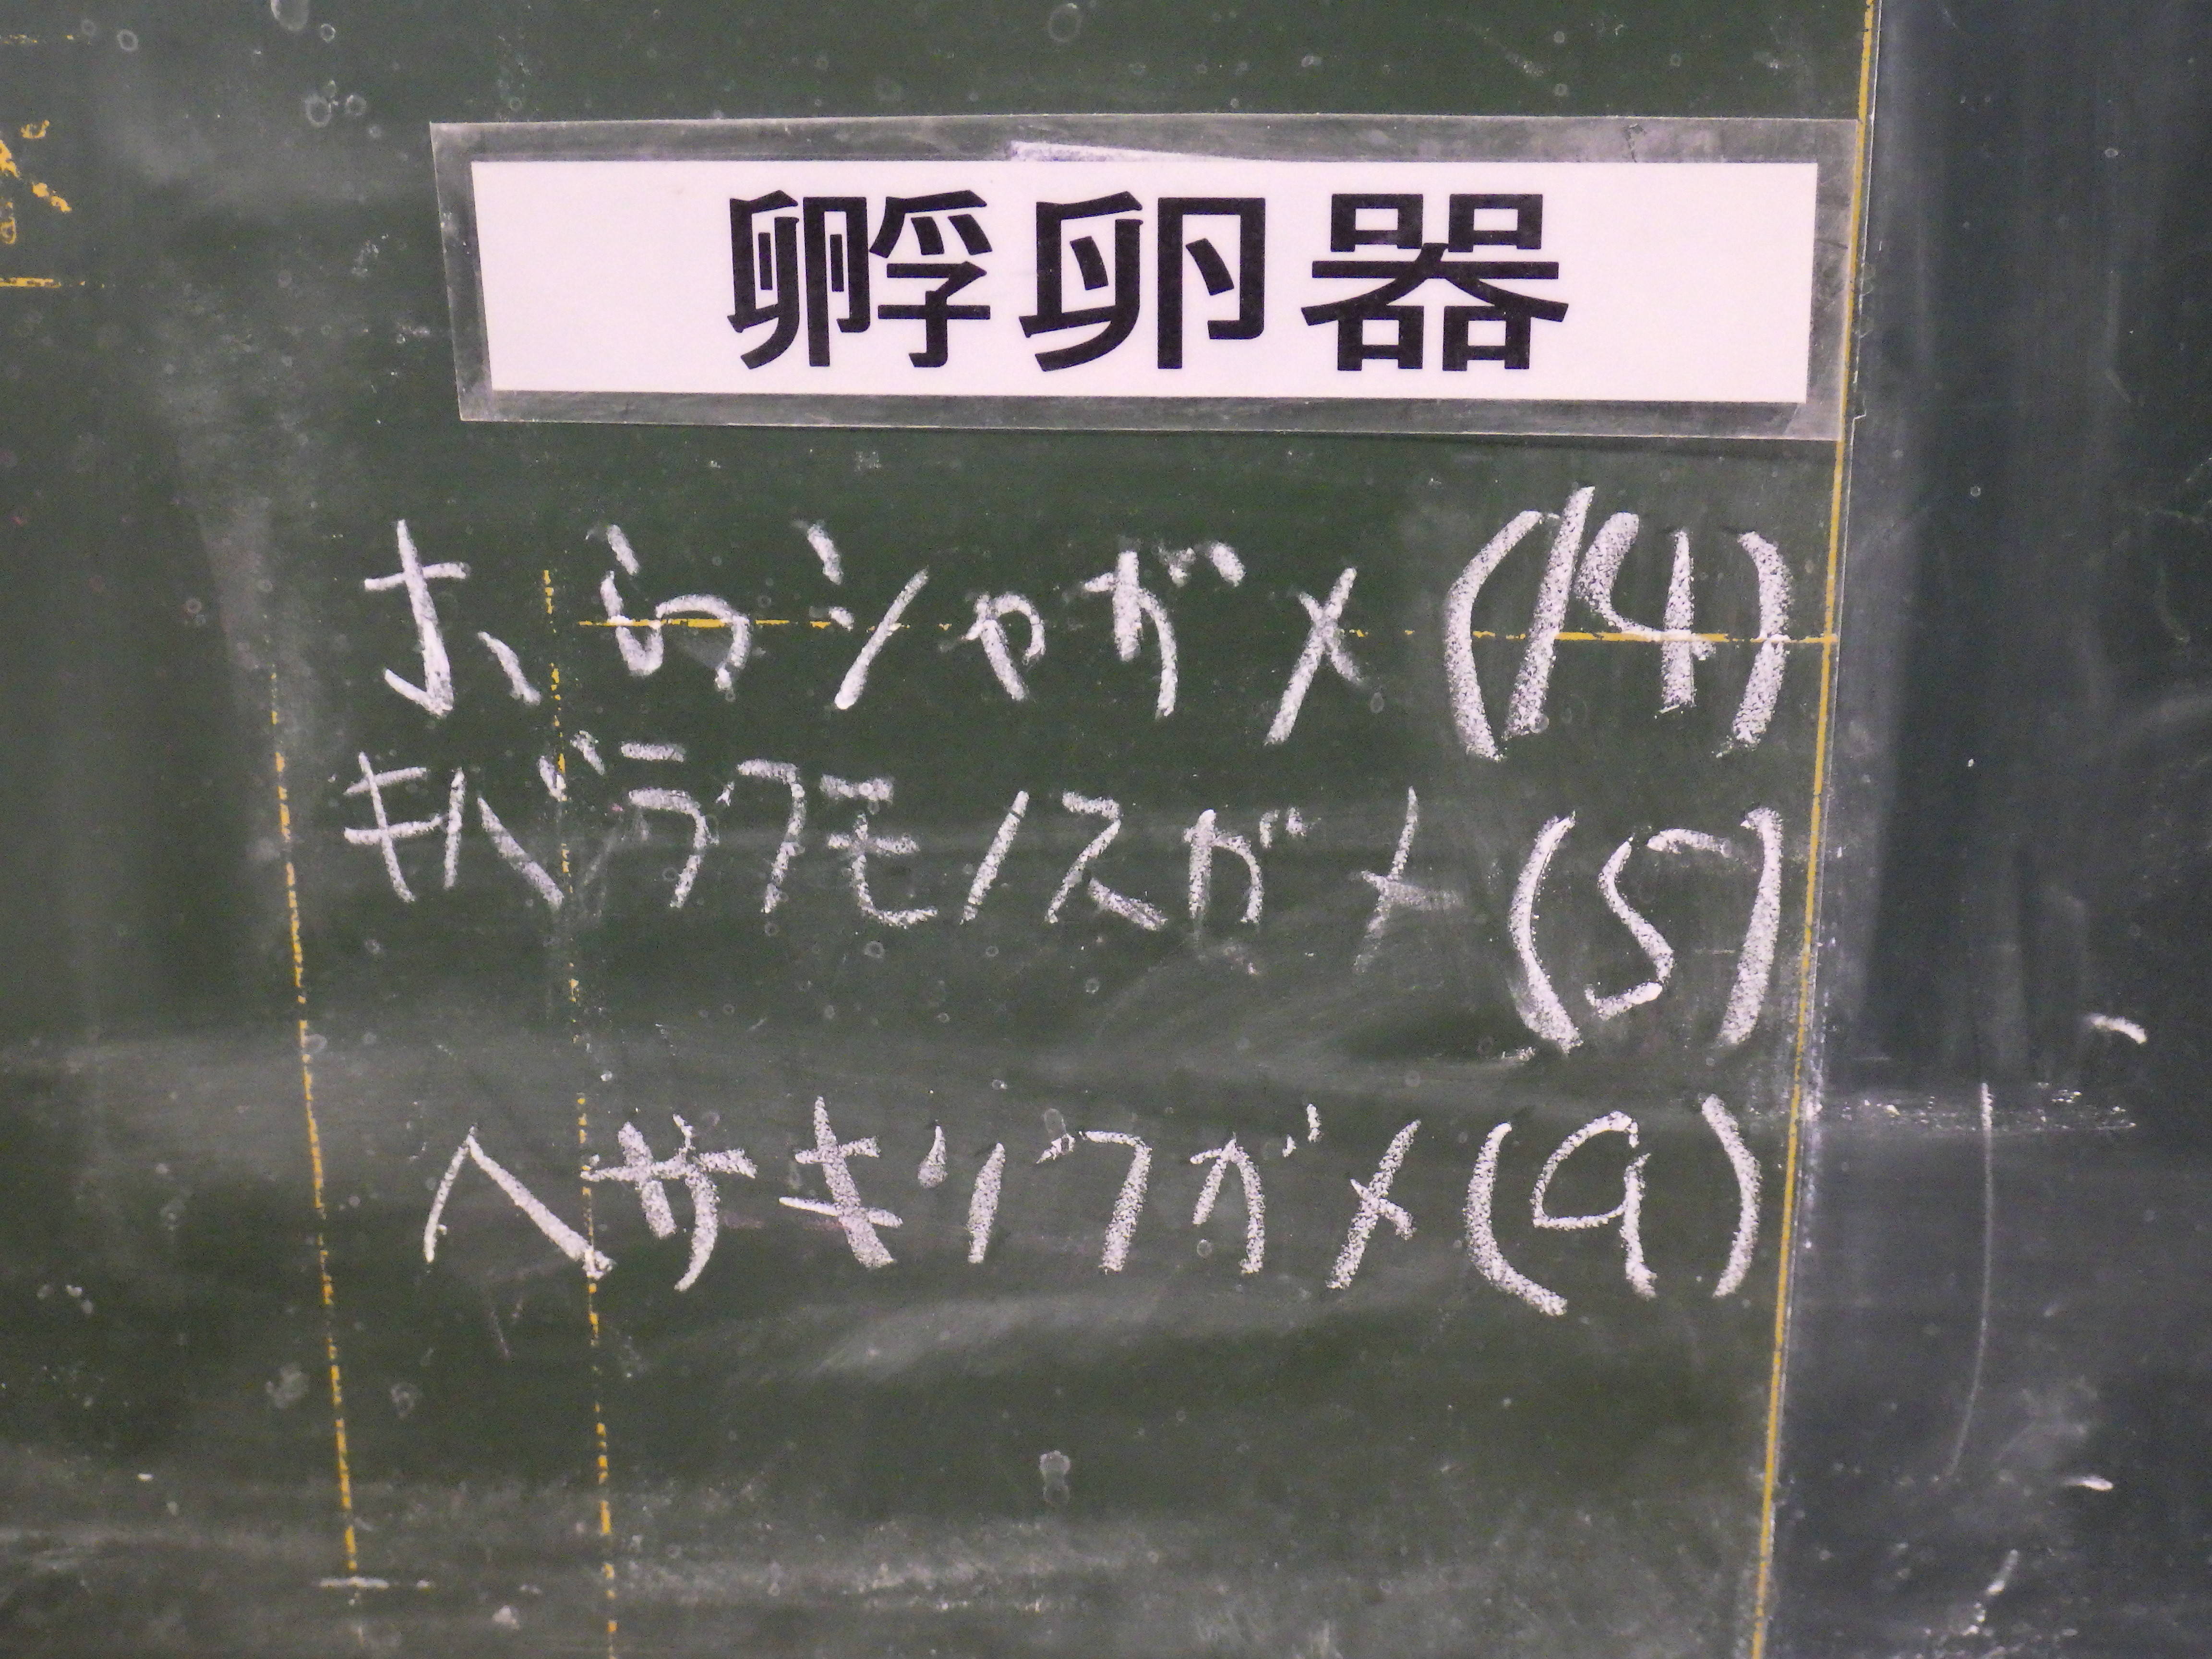 孵卵器
ホウシャガメ(14)
キバラクモノスガメ(5)
ヘサキリクガメ(9)